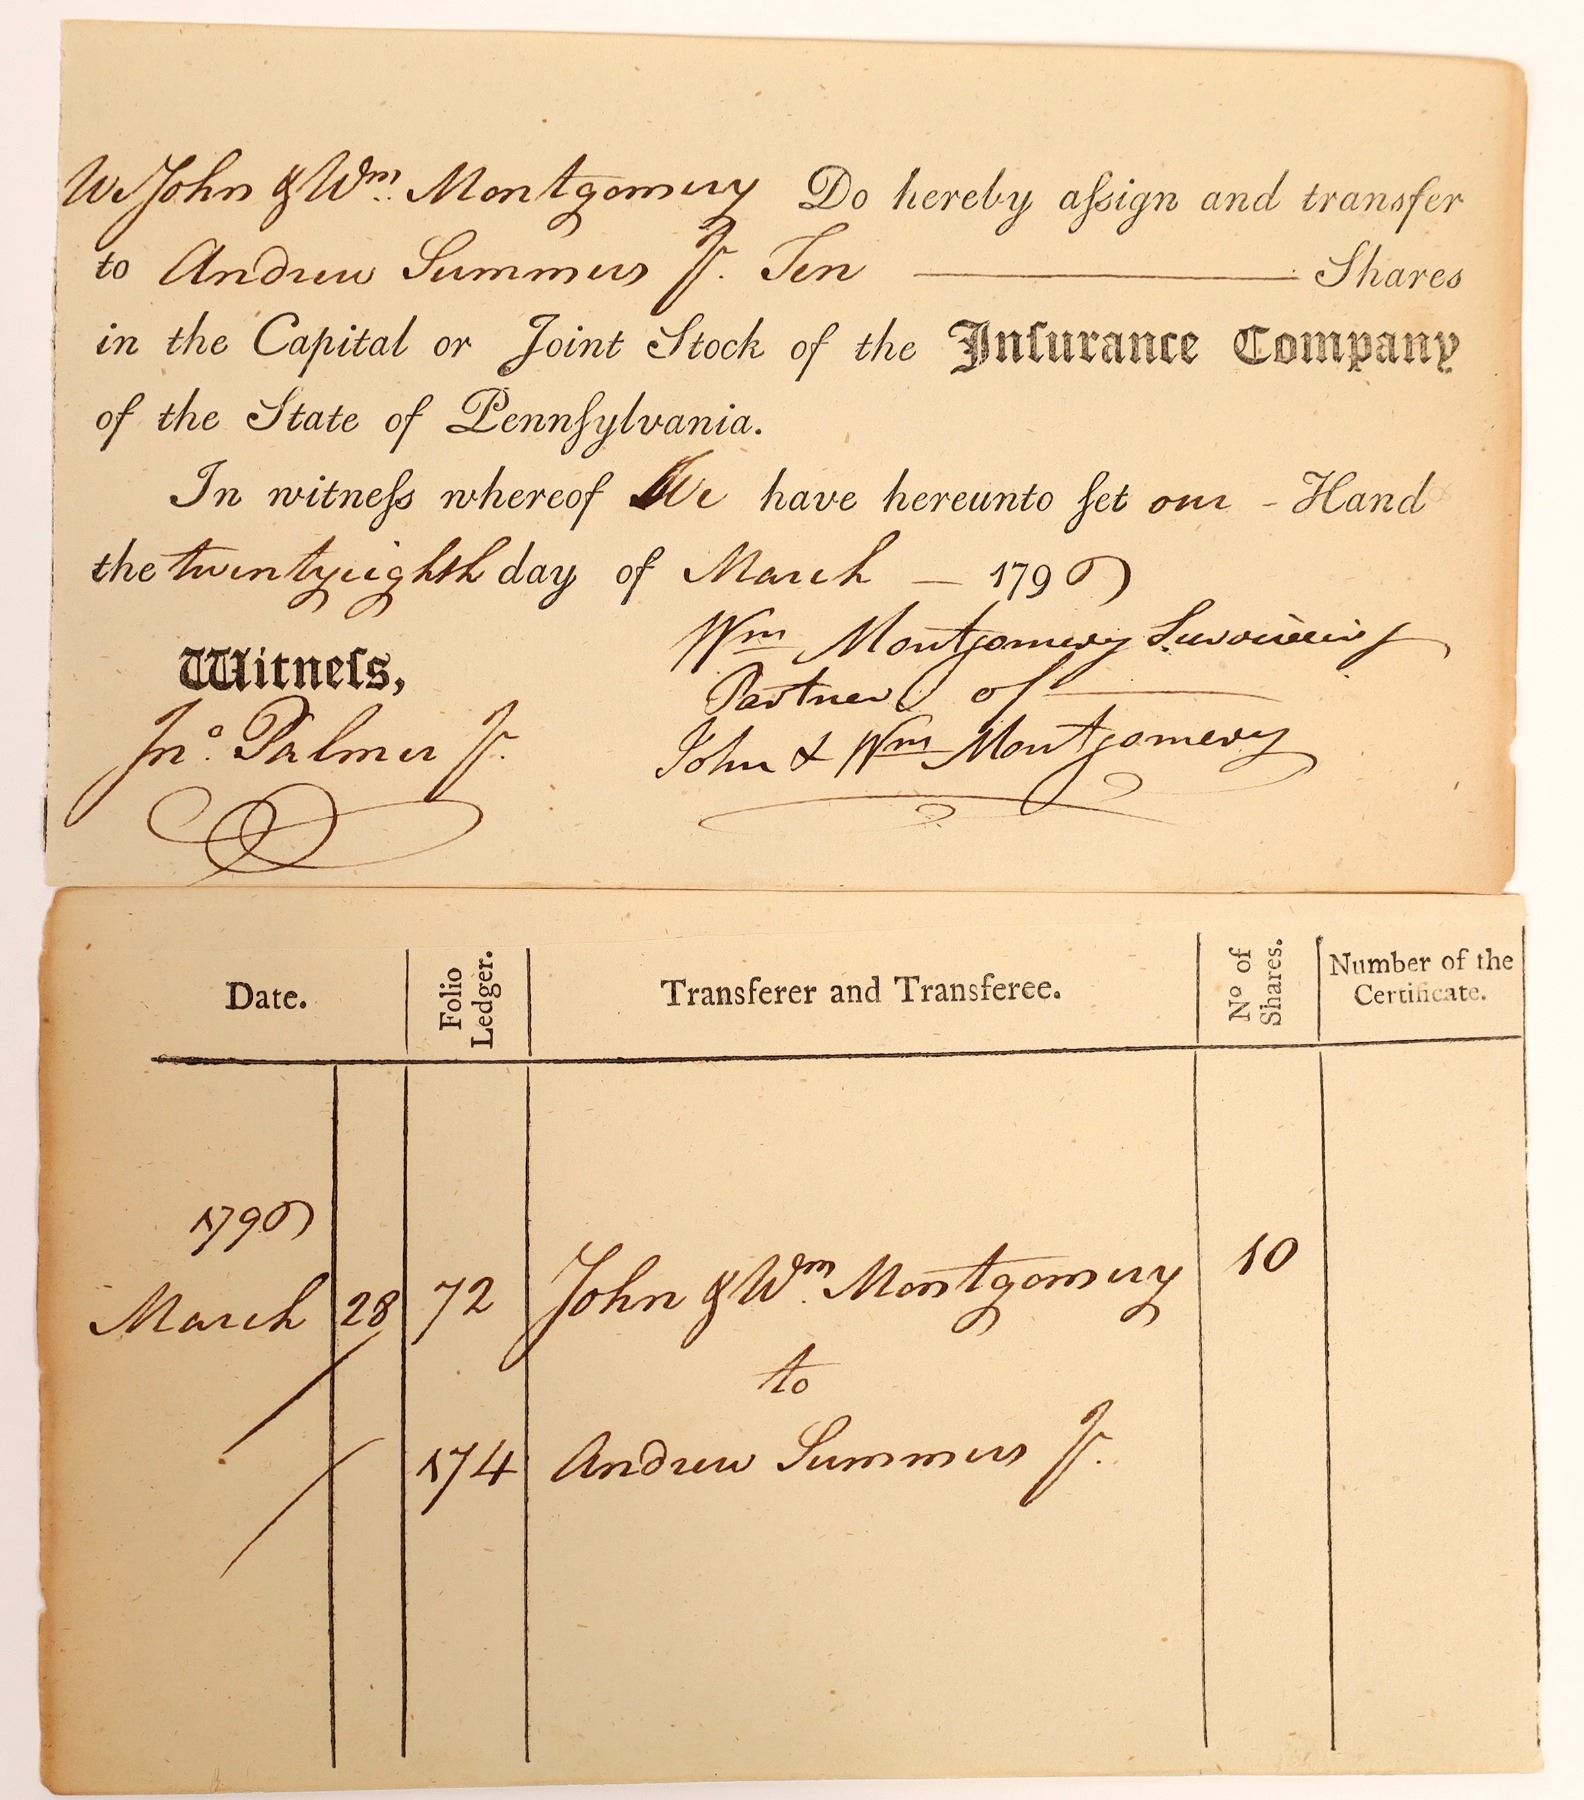 We John & Wm. Montgomery Do hereby aſsign and transfer
to Andrew Summers Jr. Ten Shares
in the Capital or Joint Stock of the Inſurance Company
of the State of Pennſylvania.
In witneſs whereof We have hereunto ſet our - Hand
the twentyeighth day of March — 1796
Witneſs,
Wm Montgomery Surviving
Partner of
Jno. Palmer Jr.
John & Wm Montgomery
Date.
Folio Ledger.
Transferer and Transferee.
No of Shares.
Number of the Certificate.
1796
March 28 72 John & Wm. Montgomery 10
to
174 Andrew Summers Jr.